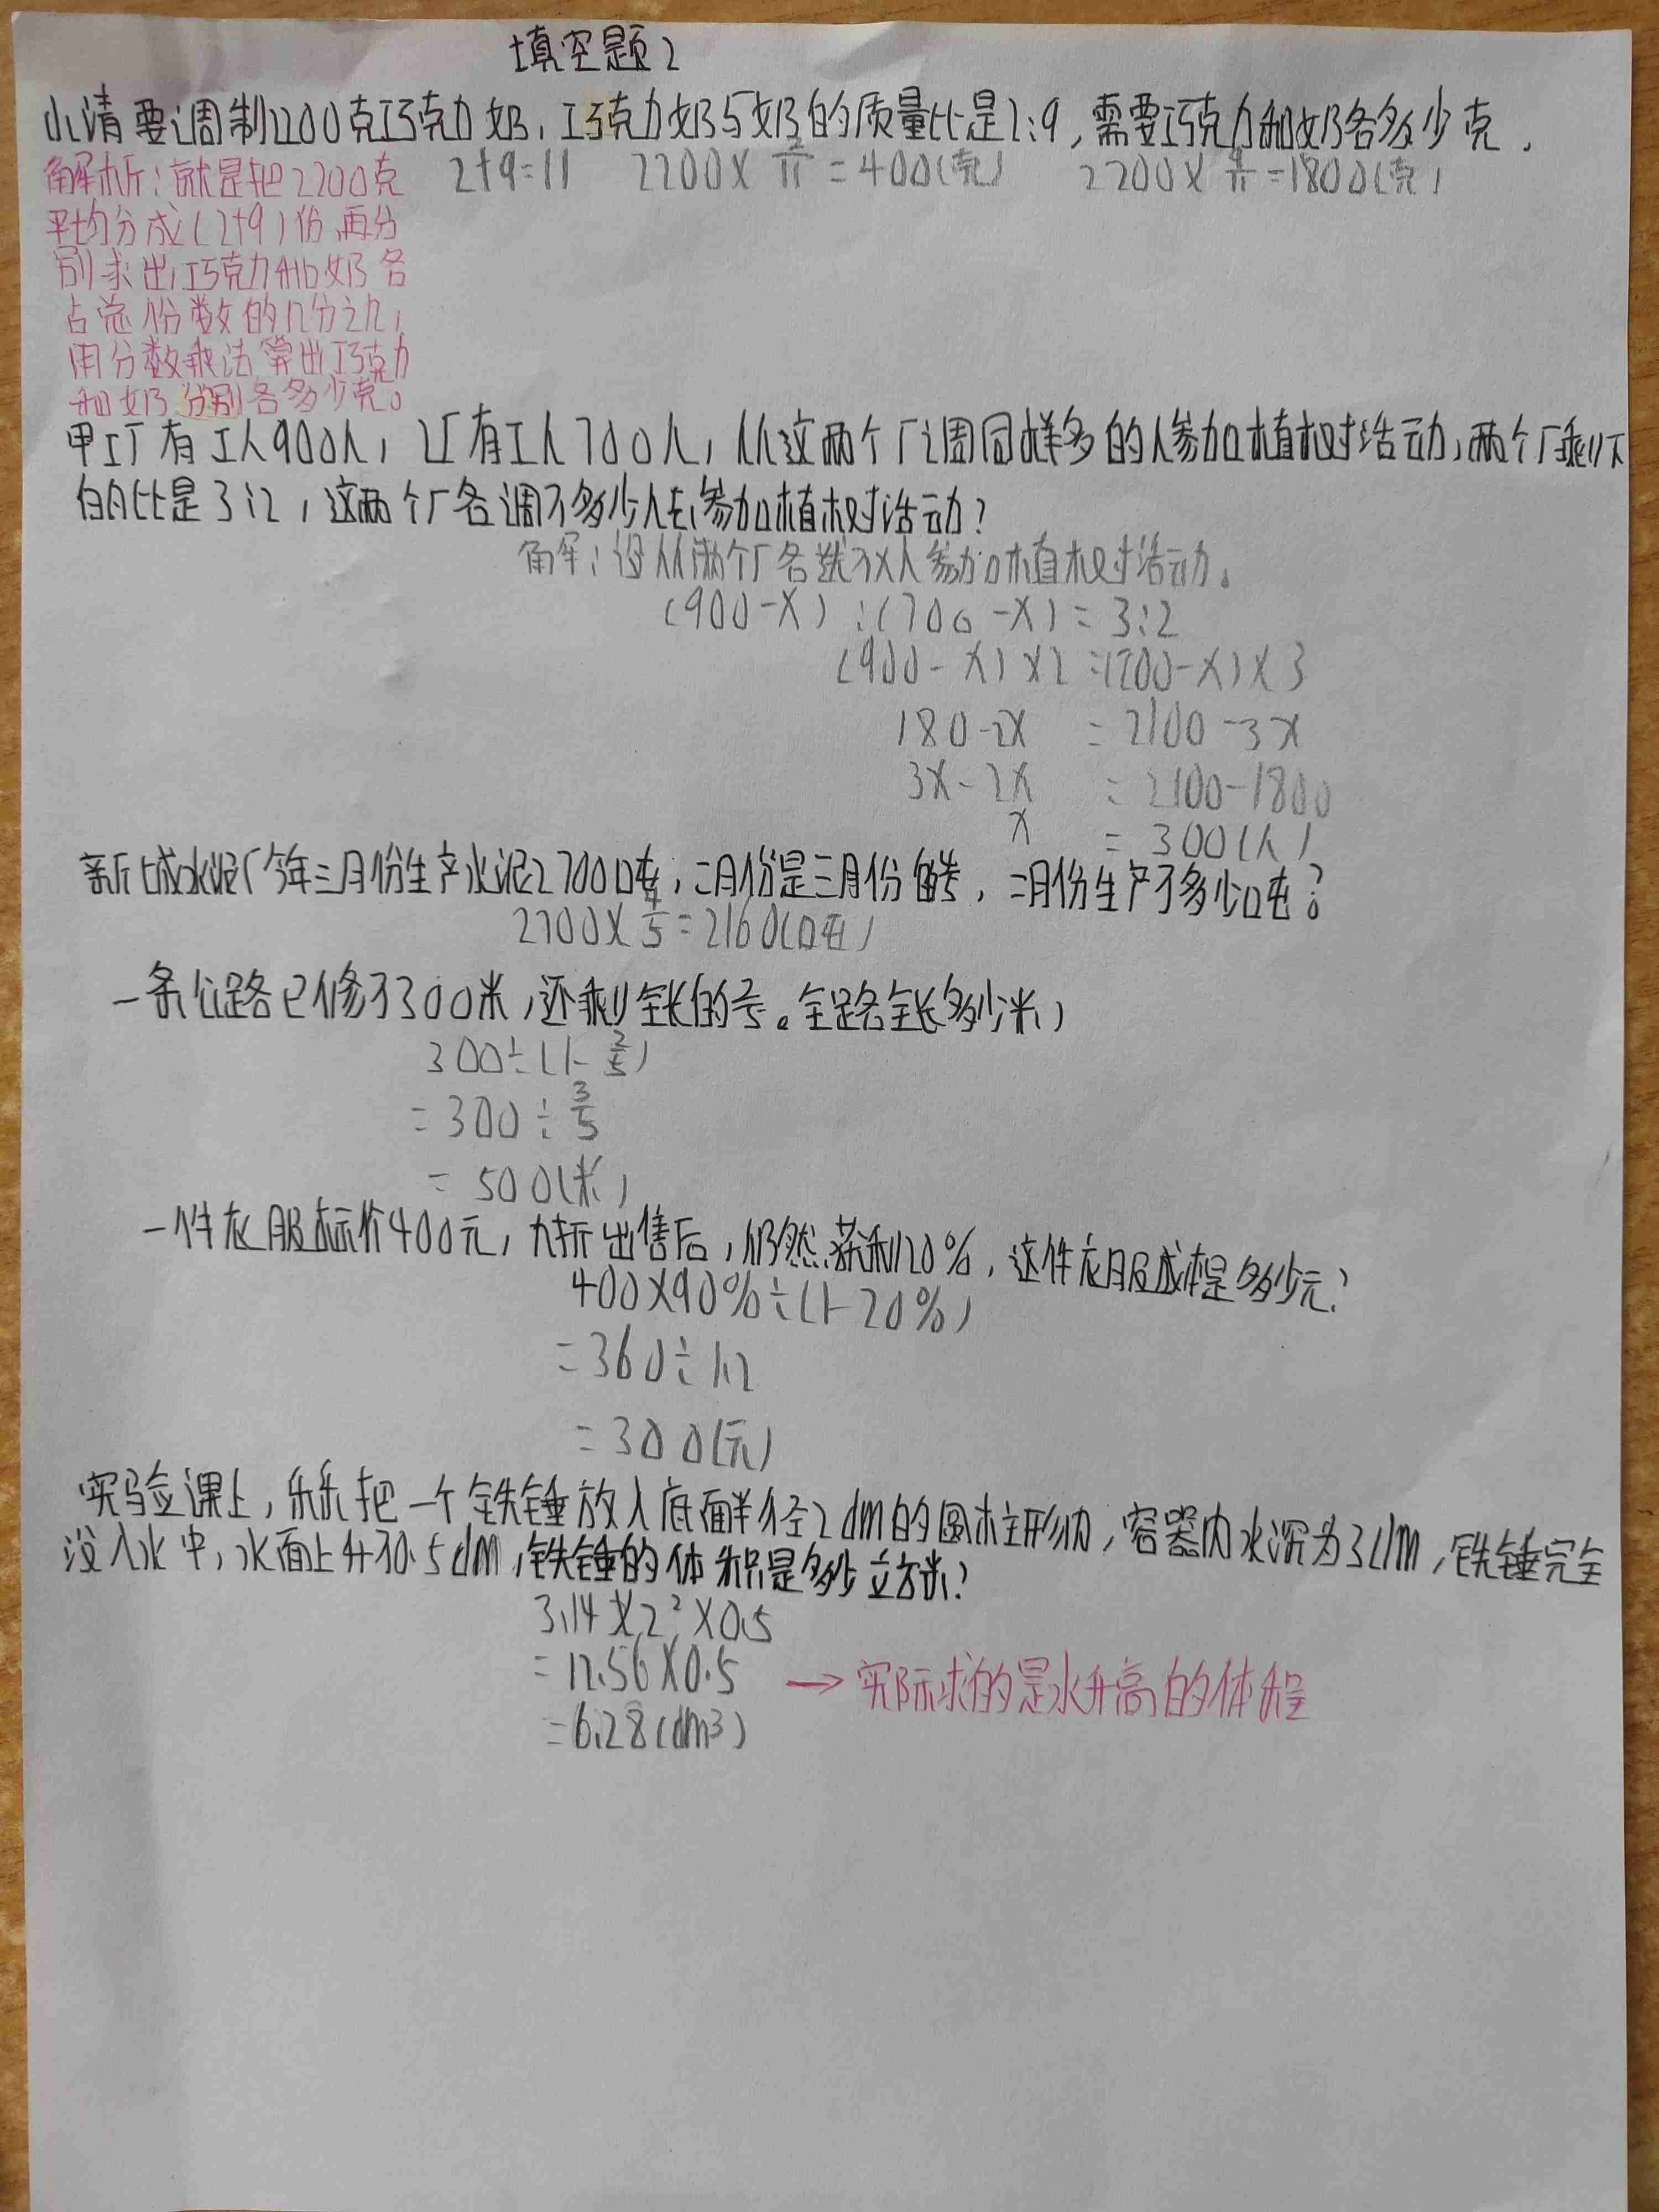 填空题2
小清要调制2200克巧克力奶,巧克力奶与奶的质量比是2:9,需要巧克力和奶各多少克.
解析:就是把2200克
平均分成(2+9)份,再分
别求出巧克力和奶各
占总份数的几分之几,
用分数乘法算出巧克力
和奶分别各多少克。
2+9=11 2200×2/11=400(克) 2200×9/11=1800(克)
甲工厂有工人900人,乙厂有工人700人,从这两个厂调同样多的人参加植树活动,两个厂剩下
的比是3:2,这两个厂各调了多少人去参加植树活动?
解:设从两个厂各选了x人参加植树活动。
(900-x):(700-x)=3:2
(900-x)×2=(700-x)×3
180-2x=2100-3x
3x-2x=2100-1800
x=300(人)
新城水泥厂今年三月份生产水泥2700吨,二月份是三月份的,二月份生产了多少吨?
2700×4/5=2160(吨)
一条公路已修了300米,还剩全长的2/5。全路全长多少米)
300÷(1-2/5)
=300÷3/5
=500(米)
一件衣服标价400元,九折出售后,仍然获利20%,这件衣服成本是多少元?
400×90%÷(1-20%)
=360÷1.2
=300(元)
实验课上,乐乐把一个铁锤放入底面半径2dm的圆柱形内,容器内水深为3dm,铁锤完全
没入水中,水面上升了0.5dm,铁锤的体积是多少立方米?
3.14×2²×0.5
=12.56×0.5
→实际求的是水升高的体程
=6.28(dm³)